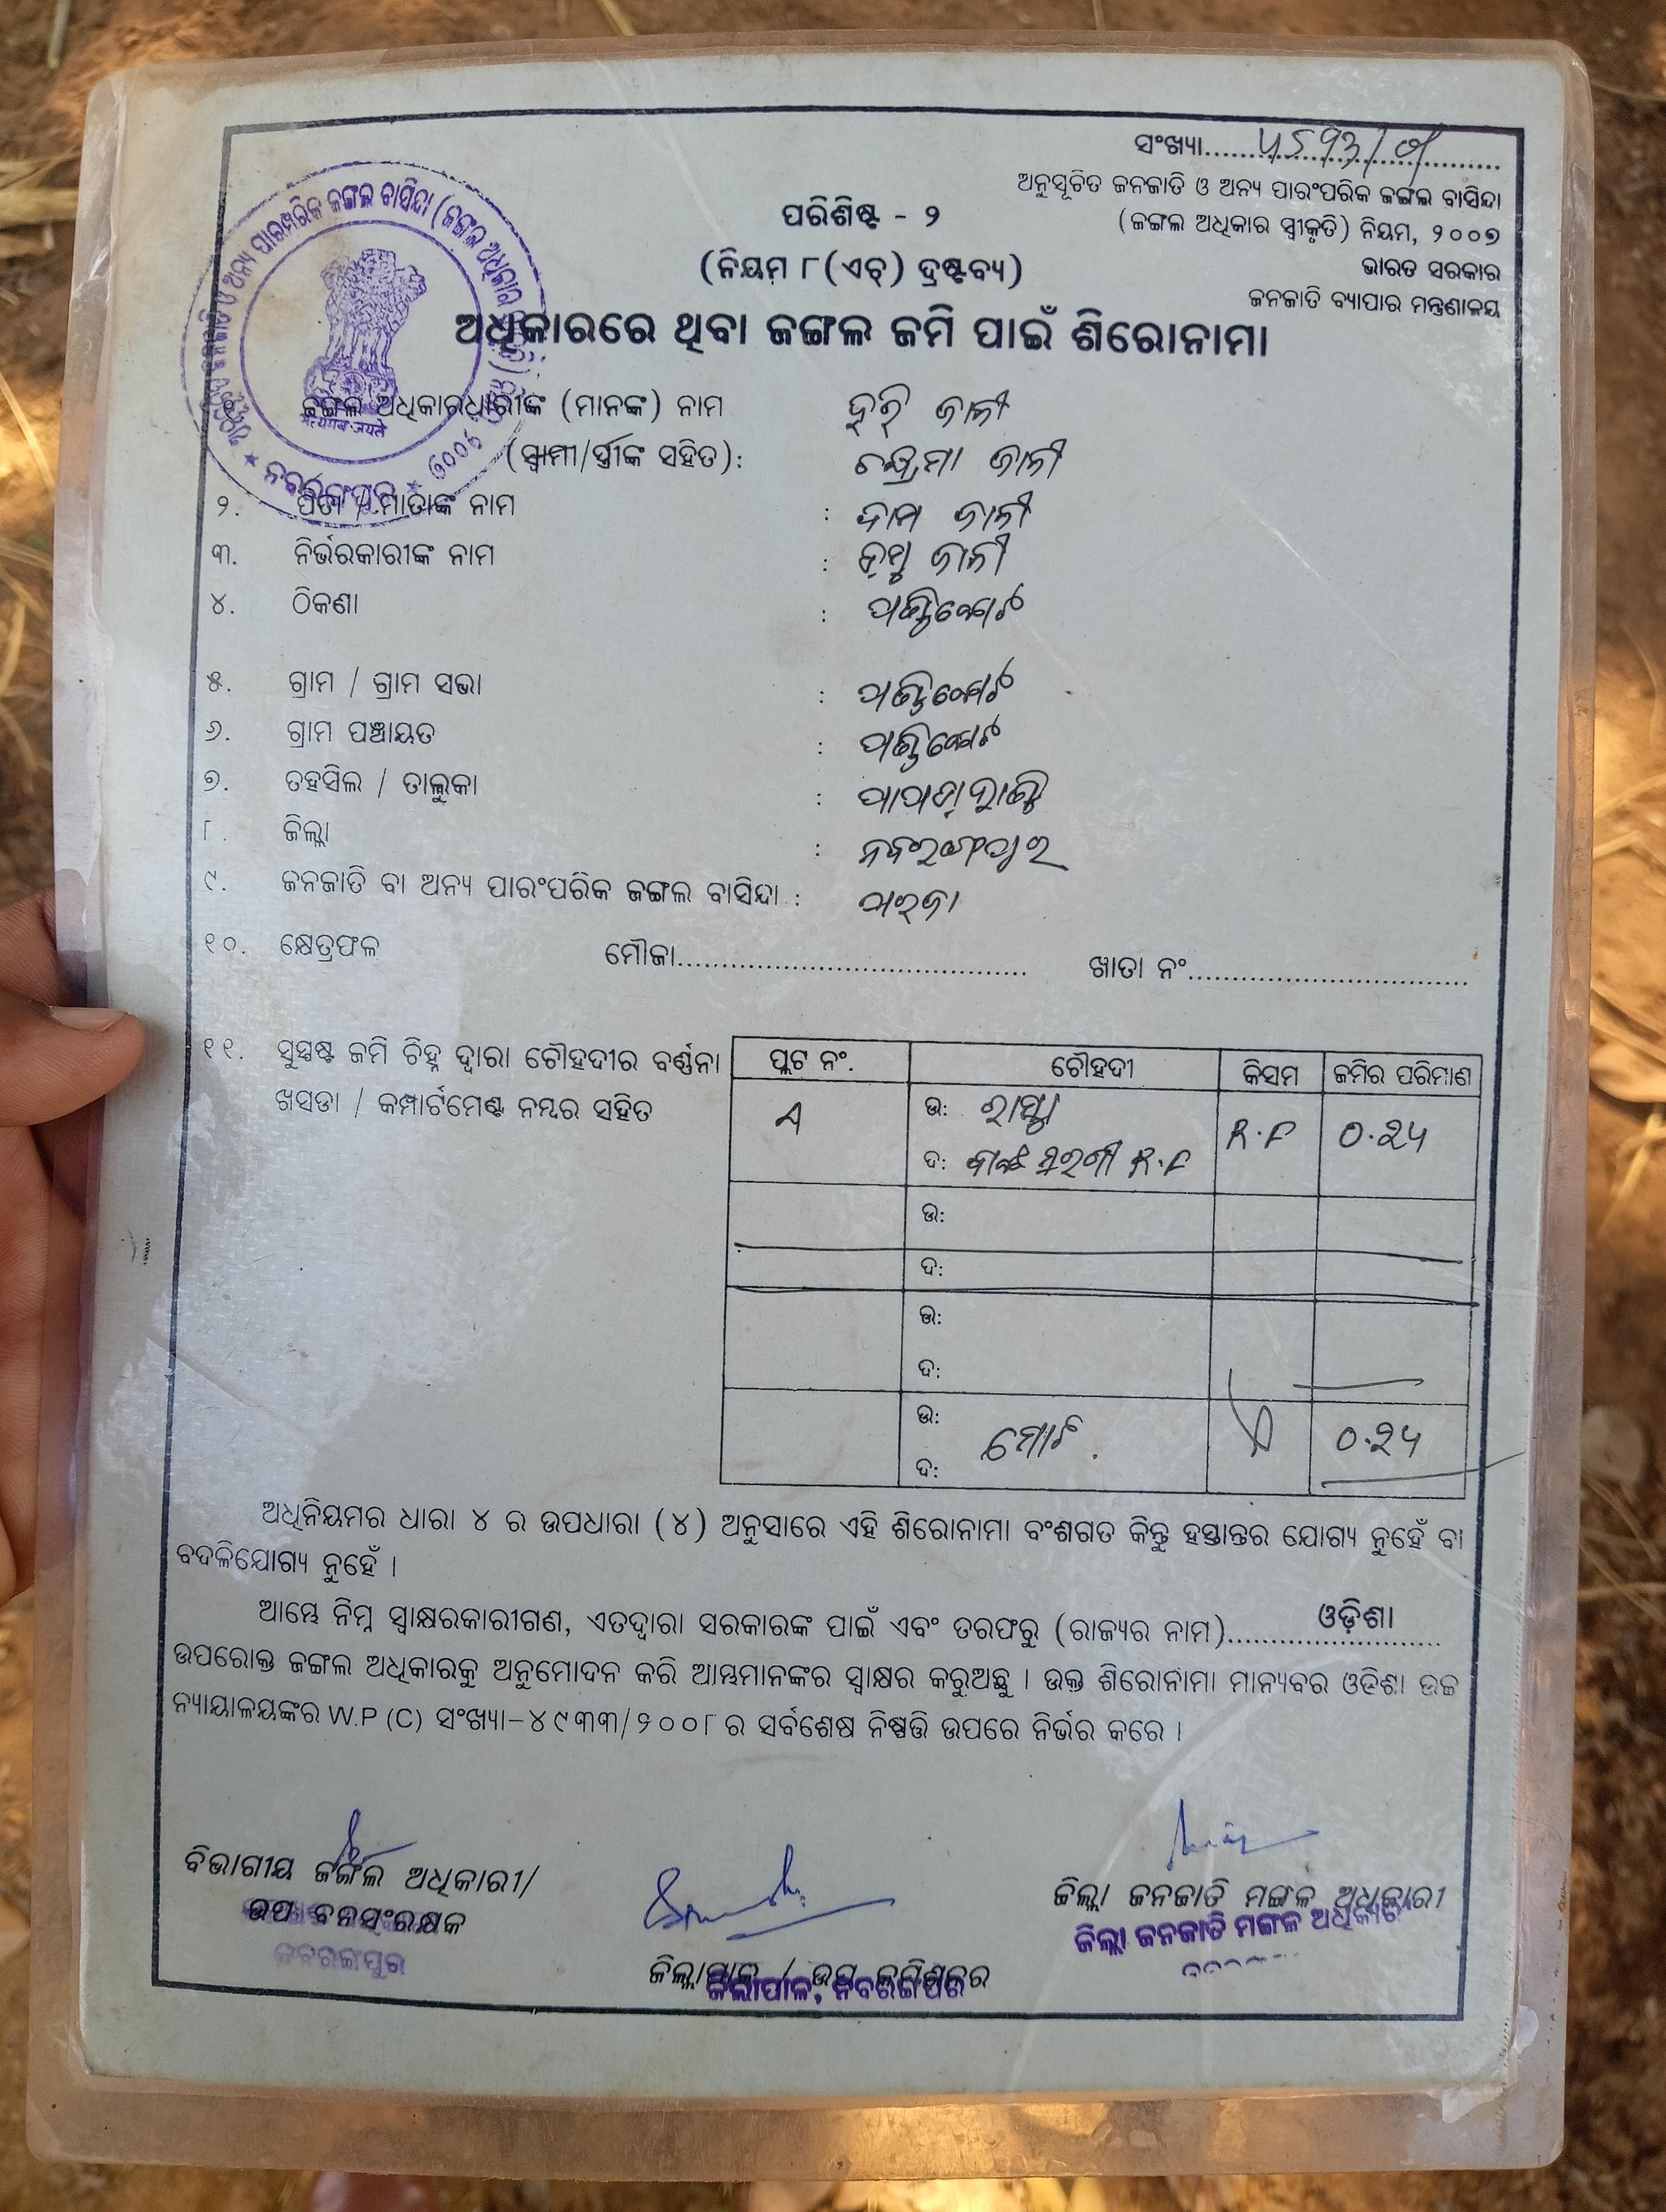 ସଂଖ୍ୟା
ଅନୁସୂଚିତ ଜନଜାତି ଓ ଅନ୍ୟ ପାରଂପରିକ ଜଙ୍ଗଲ ବାସିନ୍ଦା
(ଜଙ୍ଗଲ ଅଧିକାର ସ୍ୱୀକୃତି) ନିୟମ, ୨୦୦୭
ଭାରତ ସରକାର
ଜନଜାତି ବ୍ୟାପାର ମନ୍ତ୍ରଣାଳୟ
ପରିଶିଷ୍ଟ - ୨
(ନିୟମ ୮(ଏଚ୍) ଦ୍ରଷ୍ଟବ୍ୟ)
ଅଧିକାରରେ ଥିବା ଜଙ୍ଗଲ ଜମି ପାଇଁ ଶିରୋନାମା
ଜଙ୍ଗଲ ଅଧିକାରଧାରୀଙ୍କ (ମାନଙ୍କ) ନାମ ହରି ଜାନୀ
(ସ୍ୱାମୀ/ସ୍ତ୍ରୀଙ୍କ ସହିତ): ଚନ୍ଦ୍ରମା ଜାନୀ
୨. ପିତା / ମାତାଙ୍କ ନାମ : ଦାମ ଜାନୀ
୩. ନିର୍ଭରକାରୀଙ୍କ ନାମ : ଜାନୀ
୪. ଠିକଣା :
୫. ଗ୍ରାମ / ଗ୍ରାମ ସଭା :
୬. ଗ୍ରାମ ପଞ୍ଚାୟତ :
୭. ତହସିଲ / ତାଲୁକା : ପାପଡ଼ାହାଣ୍ଡି
୮. ଜିଲ୍ଲା : ନବରଙ୍ଗପୁର
୯. ଜନଜାତି ବା ଅନ୍ୟ ପାରଂପରିକ ଜଙ୍ଗଲ ବାସିନ୍ଦା : ପରଜା
୧୦. କ୍ଷେତ୍ରଫଳ ମୌଜା........................ ଖାତା ନଂ........................
୧୧. ସୁସ୍ପଷ୍ଟ ଜମି ଚିହ୍ନ ଦ୍ୱାରା ଚୌହଦୀର ବର୍ଣ୍ଣନା
ଖସଡା / କମ୍ପାର୍ଟମେଣ୍ଟ ନମ୍ବର ସହିତ
ପ୍ଲଟ ନଂ. ଚୌହଦୀ କିସମ ଜମିର ପରିମାଣ
ଉ: ରାସ୍ତା
ଦ: R.F R.F ୦.୨୪
ଉ:
ଦ:
ଉ:
ଦ:
ଉ:
ଦ: ମୋଟ ୦.୨୪
ଅଧିନିୟମର ଧାରା ୪ ର ଉପଧାରା (୪) ଅନୁସାରେ ଏହି ଶିରୋନାମା ବଂଶଗତ କିନ୍ତୁ ହସ୍ତାନ୍ତର ଯୋଗ୍ୟ ନୁହେଁ ବା
ବଦଳିଯୋଗ୍ୟ ନୁହେଁ ।
ଆମ୍ଭେ ନିମ୍ନ ସ୍ୱାକ୍ଷରକାରୀଗଣ, ଏତଦ୍ୱାରା ସରକାରଙ୍କ ପାଇଁ ଏବଂ ତରଫରୁ (ରାଜ୍ୟର ନାମ) ଓଡ଼ିଶା
ଉପରୋକ୍ତ ଜଙ୍ଗଲ ଅଧିକାରକୁ ଅନୁମୋଦନ କରି ଆମ୍ଭମାନଙ୍କର ସ୍ୱାକ୍ଷର କରୁଅଛୁ । ଉକ୍ତ ଶିରୋନାମା ମାନ୍ୟବର ଓଡିଶା ଉଚ୍ଚ
ନ୍ୟାୟାଳୟଙ୍କର W.P (C) ସଂଖ୍ୟା-୪୯୩୩/୨୦୦୮ ର ସର୍ବଶେଷ ନିଷ୍ପତ୍ତି ଉପରେ ନିର୍ଭର କରେ ।
ବିଭାଗୀୟ ଜଙ୍ଗଲ ଅଧିକାରୀ/
ଉପ ବନସଂରକ୍ଷକ
ନବରଙ୍ଗପୁର
ଜିଲ୍ଲାପାଳ / ଉପ କମିଶନର
ଜିଲ୍ଲାପାଳ, ନବରଙ୍ଗପୁର
ଜିଲ୍ଲା ଜନଜାତି ମଙ୍ଗଳ ଅଧିକାରୀ
ଜିଲ୍ଲା ଜନଜାତି ମଙ୍ଗଳ ଅଧିକାରୀ